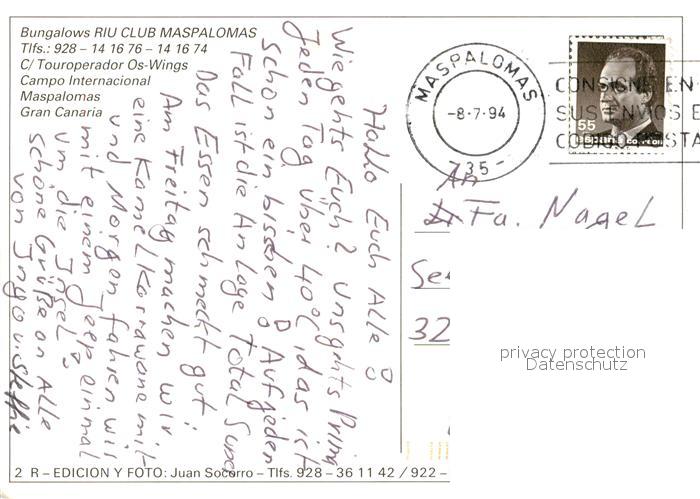 Bungalows RIU CLUB MASPALOMAS
Tlfs.: 928 – 14 16 76 – 14 16 74
C/ Touroperador Os-Wings
Campo Internacional
Maspalomas
Gran Canaria
Hallo Euch Alle
Wie gehts Euch? Uns gehts Prima
Jeden Tag über 40°C das ist
schon ein bisschen Auf jeden
Fall ist die Anlage Total Super
Das Essen schmeckt gut
Am Freitag machen wir
eine Kamelkarawane mit
und Morgen fahren wir
mit einem Jeep einmal
um die Insel
schöne Grüße an Alle
von Ingo u. Steffie
MASPALOMAS
-8-7-94
735
CONSIGNE EN
SUS ENVIOS E
CODIGO POSTA
55
España correos
An
Fa. Nagel
Se
32
privacy protection
Datenschutz
2 R – EDICION Y FOTO: Juan Socorro – Tlfs. 928 – 36 11 42 / 922 –